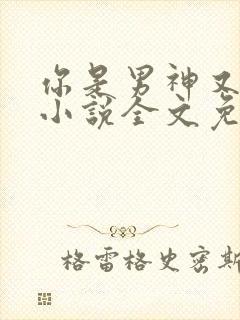 你是男神又
小說全文免
格雷格史密斯